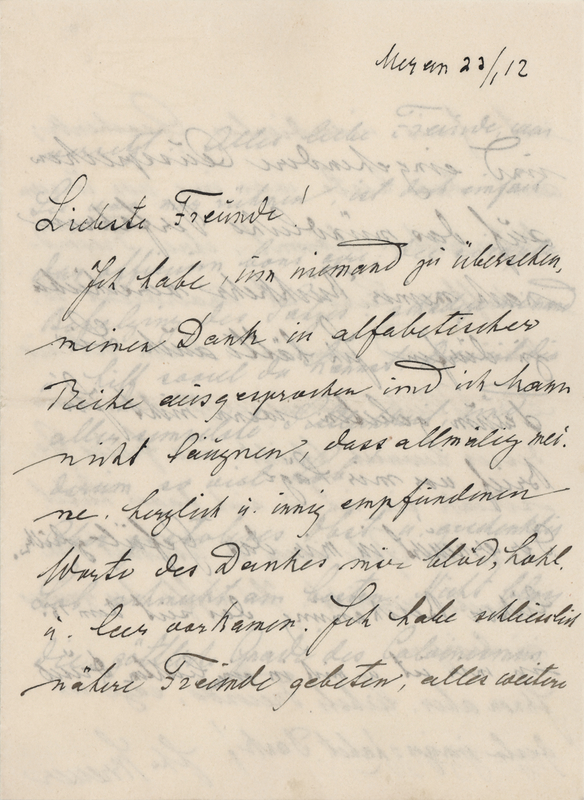 Meran 23/1 12
Liebste Freunde!
Ich habe, um niemand zu übersehen,
meinen Dank in alfabetischer
Reihe ausgesprochen und ich kann
nicht läugnen, dass allmälig mei-
ne herzlich u. innig empfundenen
Worte des Dankes mir blöd, hohl
u. leer vorkamen. Ich habe schliesslich
nähere Freunde gebeten, alles weitere